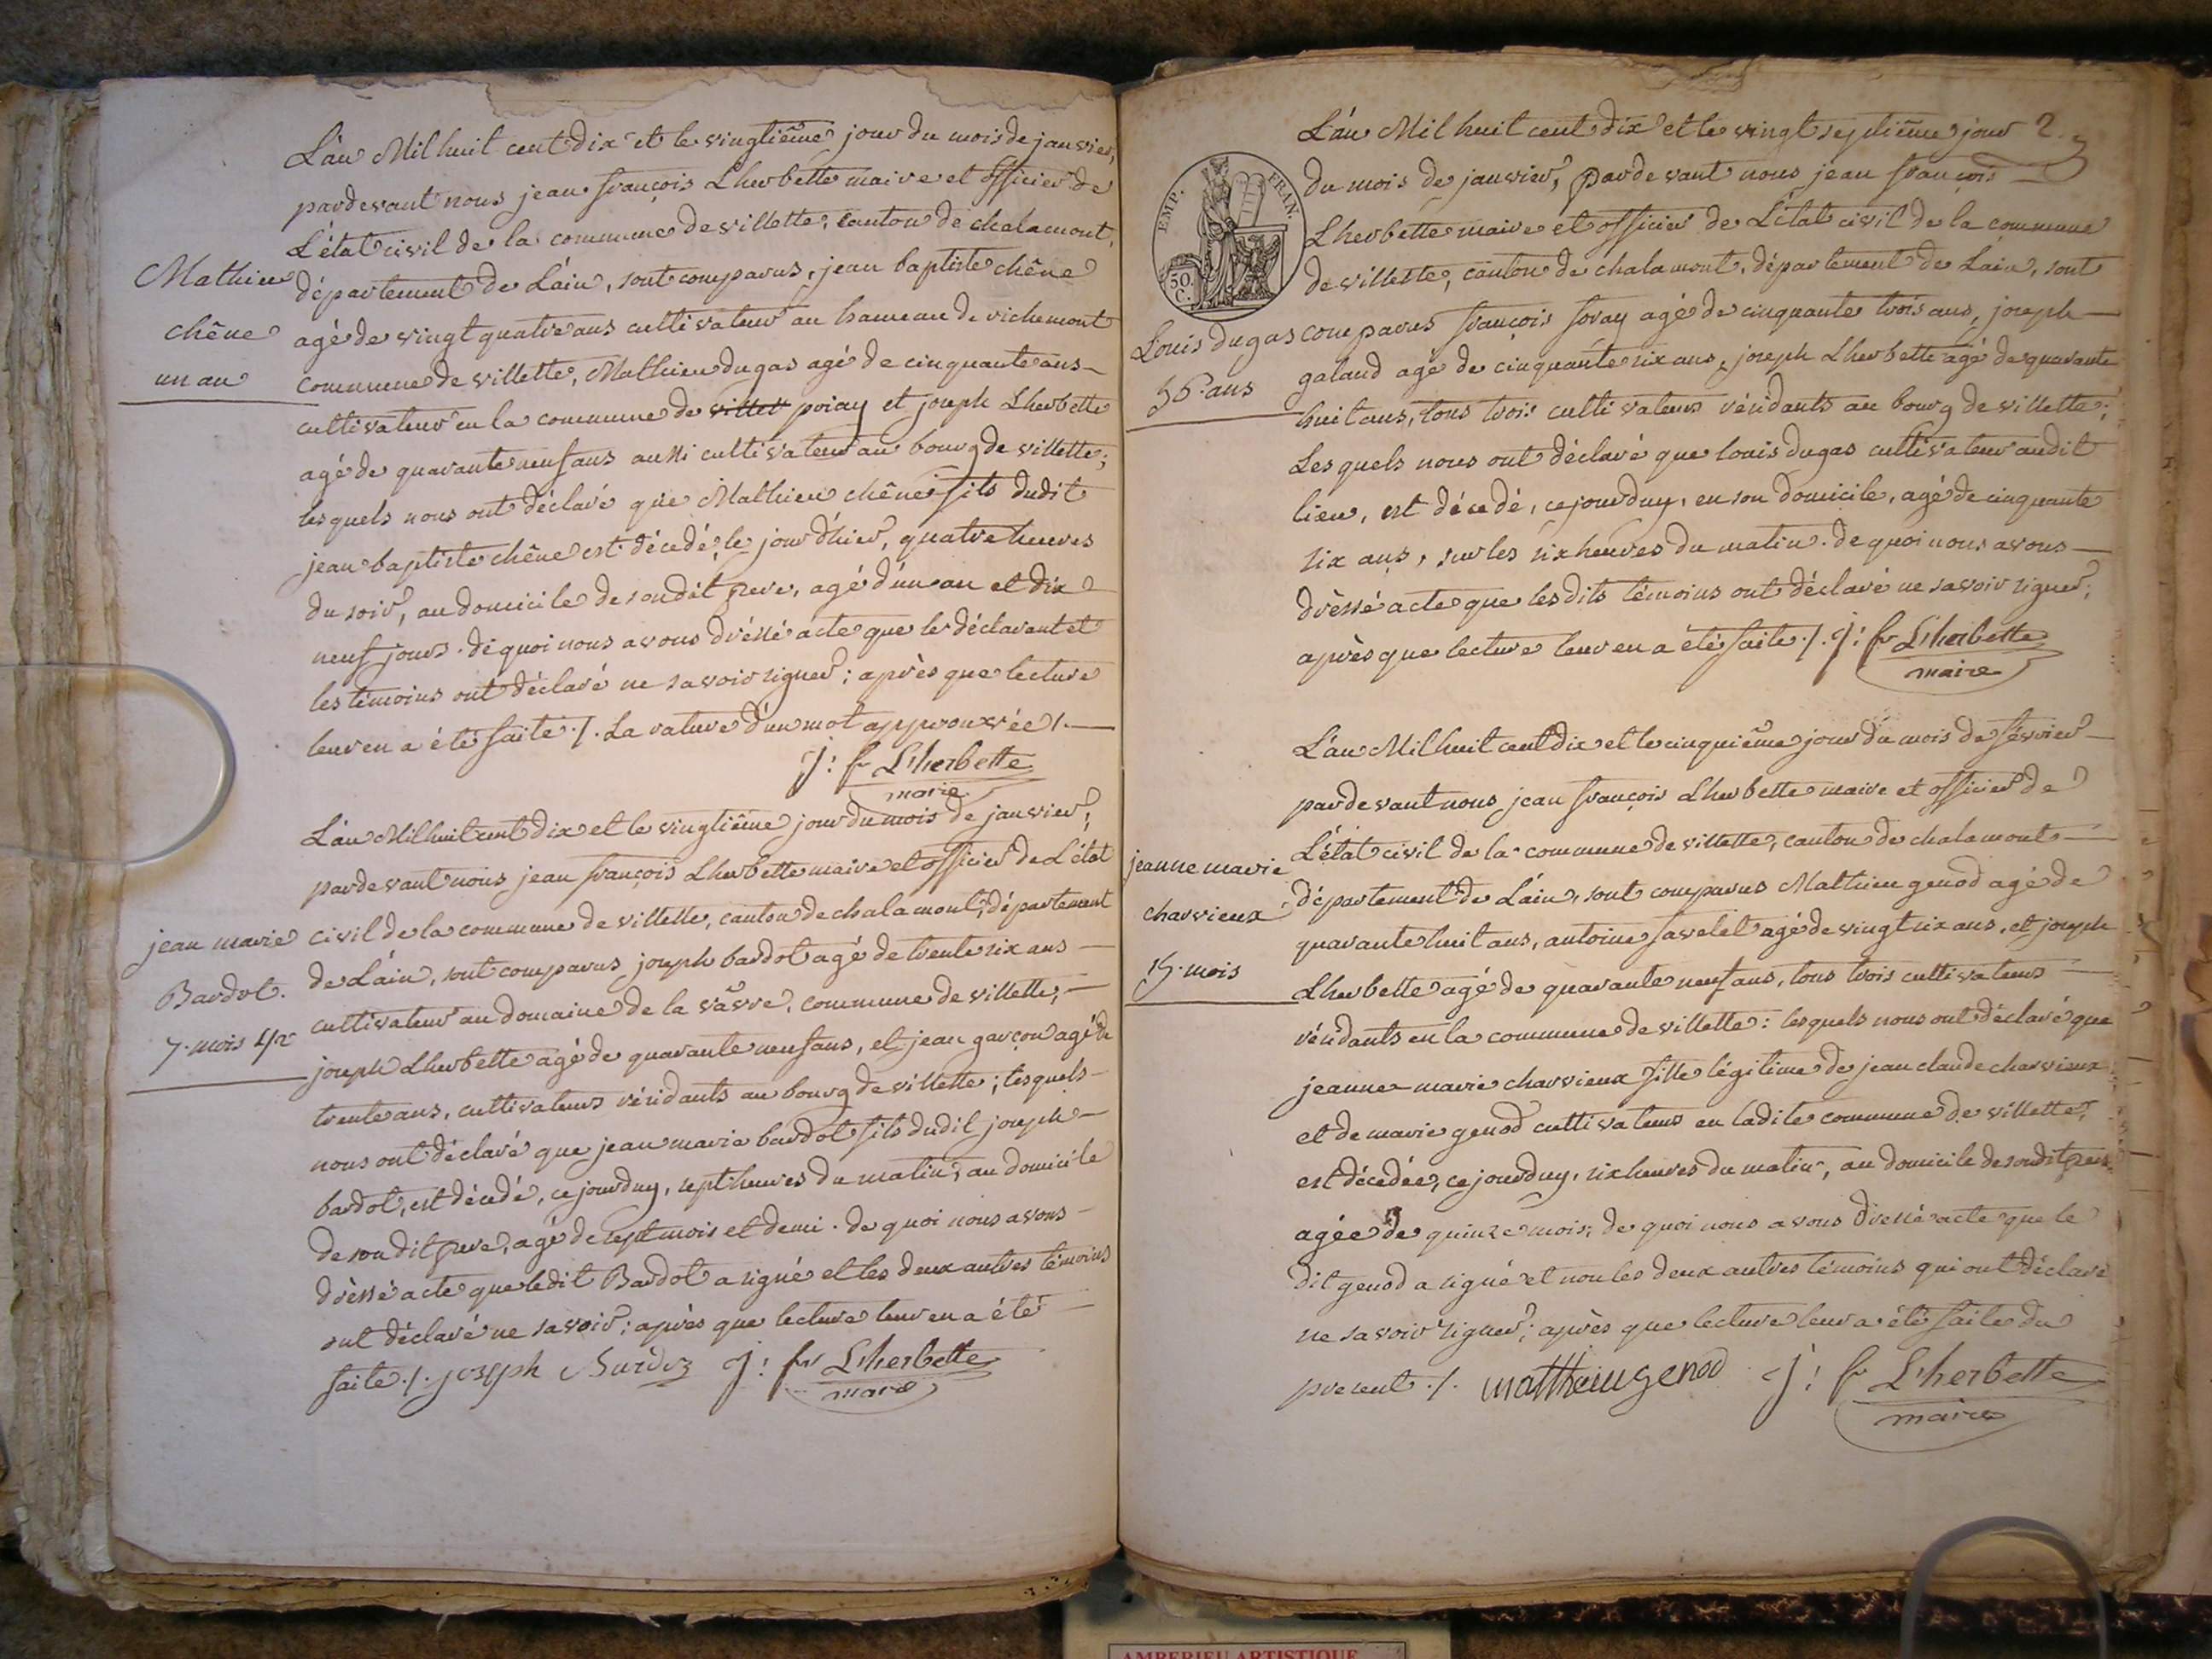 L'an Mil huit cent dix et le vingtiême jour du mois de janvier,
pardevant nous jean françois Lherbette maire et officier de
L'état civil de la commune de villette, canton de chalamont,
département de L'ain, sont comparus, jean baptiste chêne
agé de vingt quatre ans cultivateur au hameau de richemont
commune de villette, Mathieu dugas agé de cinquante ans
cultivateur en la commune de villett poiay et joseph Lherbette
agé de quarante neuf ans aussi cultivateur au bourg de villette;
lesquels nous ont déclaré que Mathieu chêne fils dudit
jean baptiste chêne est décedé, le jour d'hier, quatre heures
du soir, au domicile de son dit pere, agé d'un an et dix
neuf jours. de quoi nous avons dréssé acte que le déclarant et
les témoins ont déclaré ne savoir signer; après que lecture
leur en a été faite ./. La rature d'un mot approuvée /.
J: fr L'herbette
maire
Mathieu
chêne
un an
L'an Mil huit cent dix et le vingtiême jour du mois de janvier,
pardevant nous jean françois Lherbette maire et officier de L'état
civil de la commune de villette, canton de chalamont, département
de L'ain, sont comparus joseph bardot agé de trente six ans
cultivateur au domaine de la vavre, commune de villette,
joseph Lherbette agé de quarante neuf ans, et jean garçon agé de
trente ans, cultivateurs résidants au bourg de villette; lesquels
nous ont déclaré que jean marie bardot fils dudit joseph
bardot, est décedé, ce jourduy, sept heures du matin, au domicile
de son dit pere, agé de sept mois et demi. de quoi nous avons
dréssé acte que ledit Bardot a signé et les deux autres témoins
ont déclaré ne savoir; après que lecture leur en a été
faite ./. joseph Burdoz J: fr L'herbette
maire
jean marie
Bardot.
7. mois 1/2
L'an Mil huit cent dix et le vingt septiême jour 2.
du mois de janvier, pardevant nous jean françois
Lherbette maire et officier de L'état civil de la commune
de villette, canton de chalamont, département de L'ain, sont
comparus françois foray agé de cinquante trois ans, joseph
galand agé de cinquante six ans, joseph Lherbette agé de quarante
huit ans, tous trois cultivateurs résidants au bourg de villette;
Lesquels nous ont déclaré que louis dugas cultivateur audit
lieu, est décedé, ce jourduy, en son domicile, agé de cinquante
six ans, sur les six heures du matin. de quoi nous avons
dréssé acte que lesdits témoins ont déclaré ne savoir signer;
après que lecture leur en a été faite ./. J: fr L'herbette
maire
EMP. FRAN.
50. C.
Louis dugas
56. ans
L'an Mil huit cent dix et le cinquiême jour du mois de févrierr
pardevant nous jean françois Lherbette maire et officier de
L'état civil de la commune de villette, canton de chalamont
département de L'ain, sont comparus Mathieu genod agé de
quarante huit ans, antoine favelet agé de vingt six ans, et joseph
Lherbette agé de quarante neuf ans, tous trois cultivateurs
résidants en la commune de villette: lesquels nous ont déclaré que
jeanne-marie charvieux fille légitime de jean claude charvieux
et de marie genod cultivateurs en ladite commune de villette,
est décedée, ce jourduy, six heures du matin, au domicile de sondit pere,
agée de quinze mois; de quoi nous avons dressé acte que le
dit genod a signé et non les deux autres témoins qui ont déclaré
ne savoir signer; après que lecture leur a été faite du
present ./. mattheiugenod J: fr L'herbette
maire
jeanne marie
charvieux
15. mois
AMBERIEU ARTISTIQUE